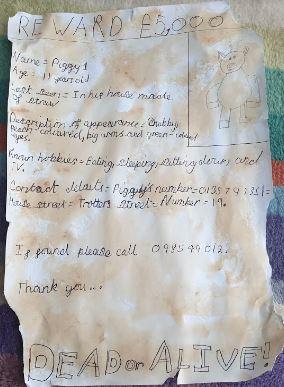 REWARD £5,000
Name = Piggy 1
Age = 11 years old
Last seen = In his house made
of straw
Description of appearance = Chubby
peach-coloured, big arms and green-coloured
eyes.
Known hobbies = Eating, sleeping, sitting down and
TV.
Contact details = Piggy's number =
House street = Trotters Street = Number = 19.
If found please call
Thank you...
DEAD or ALIVE!